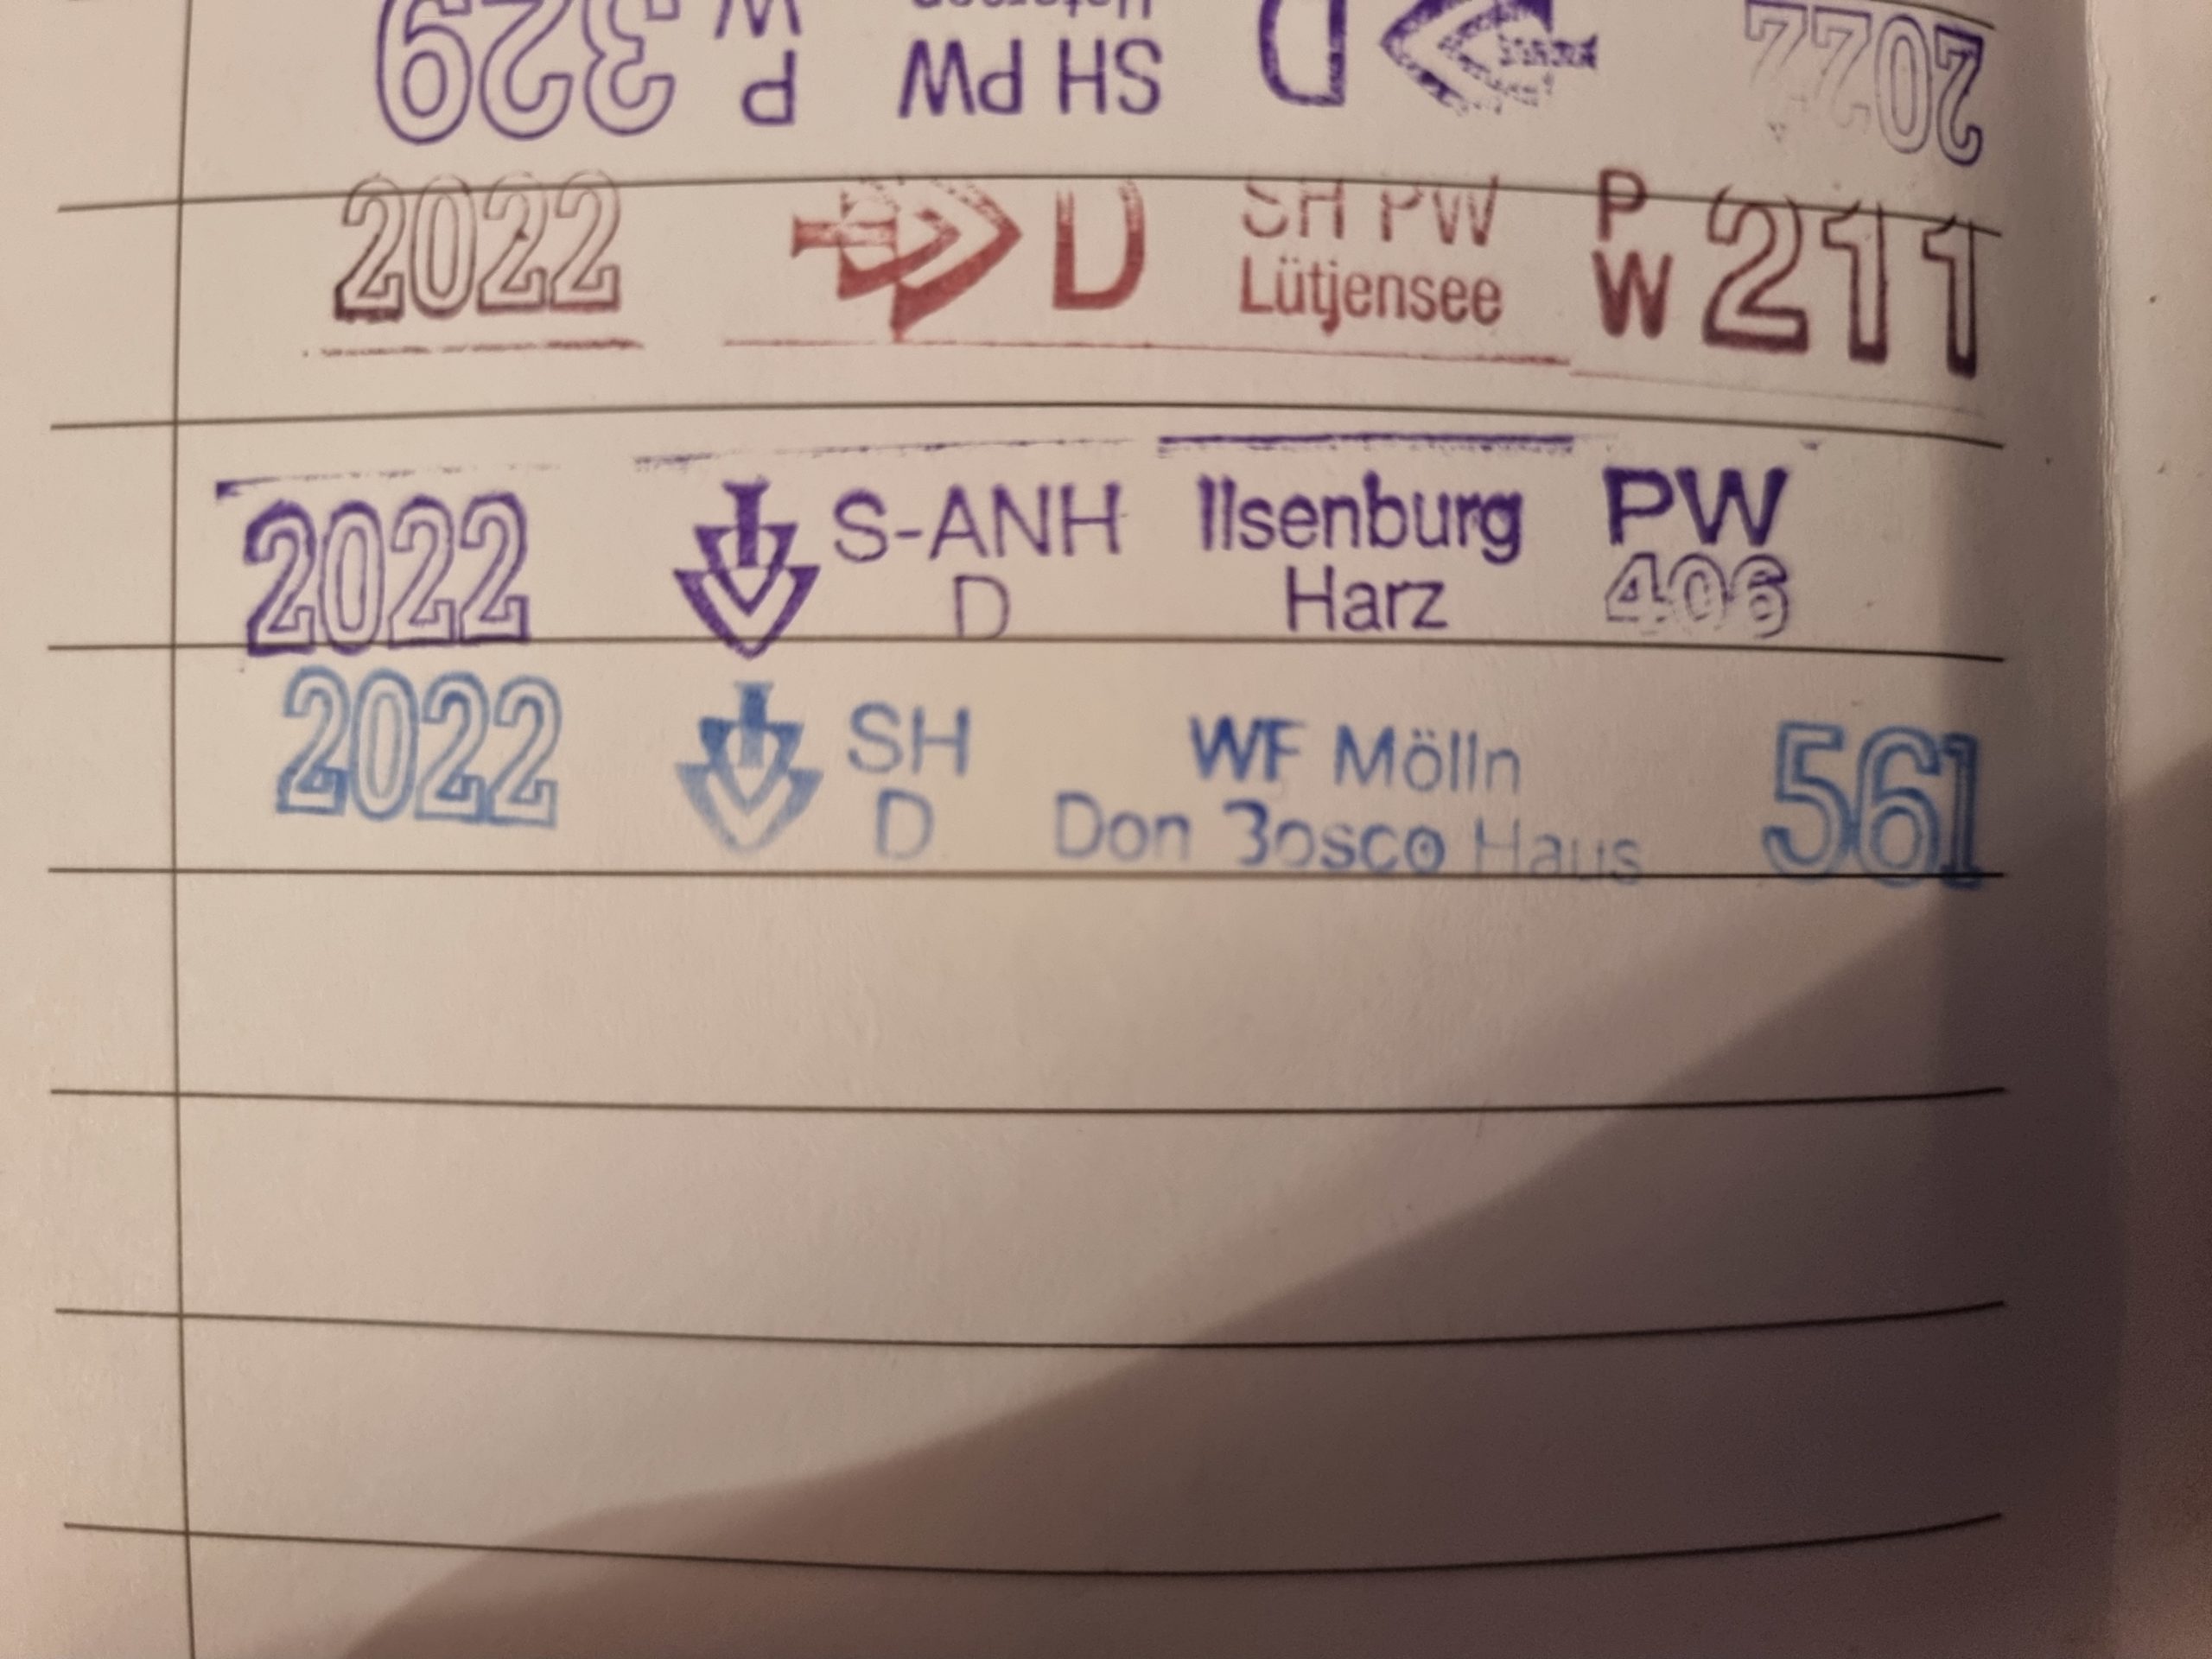 2022 D SH PW P W 329
2022 D SH PW P
Lütjensee W 211
2022 S-ANH Ilsenburg PW
D Harz 406
2022 SH WF Mölln 561
D Don Bosco Haus